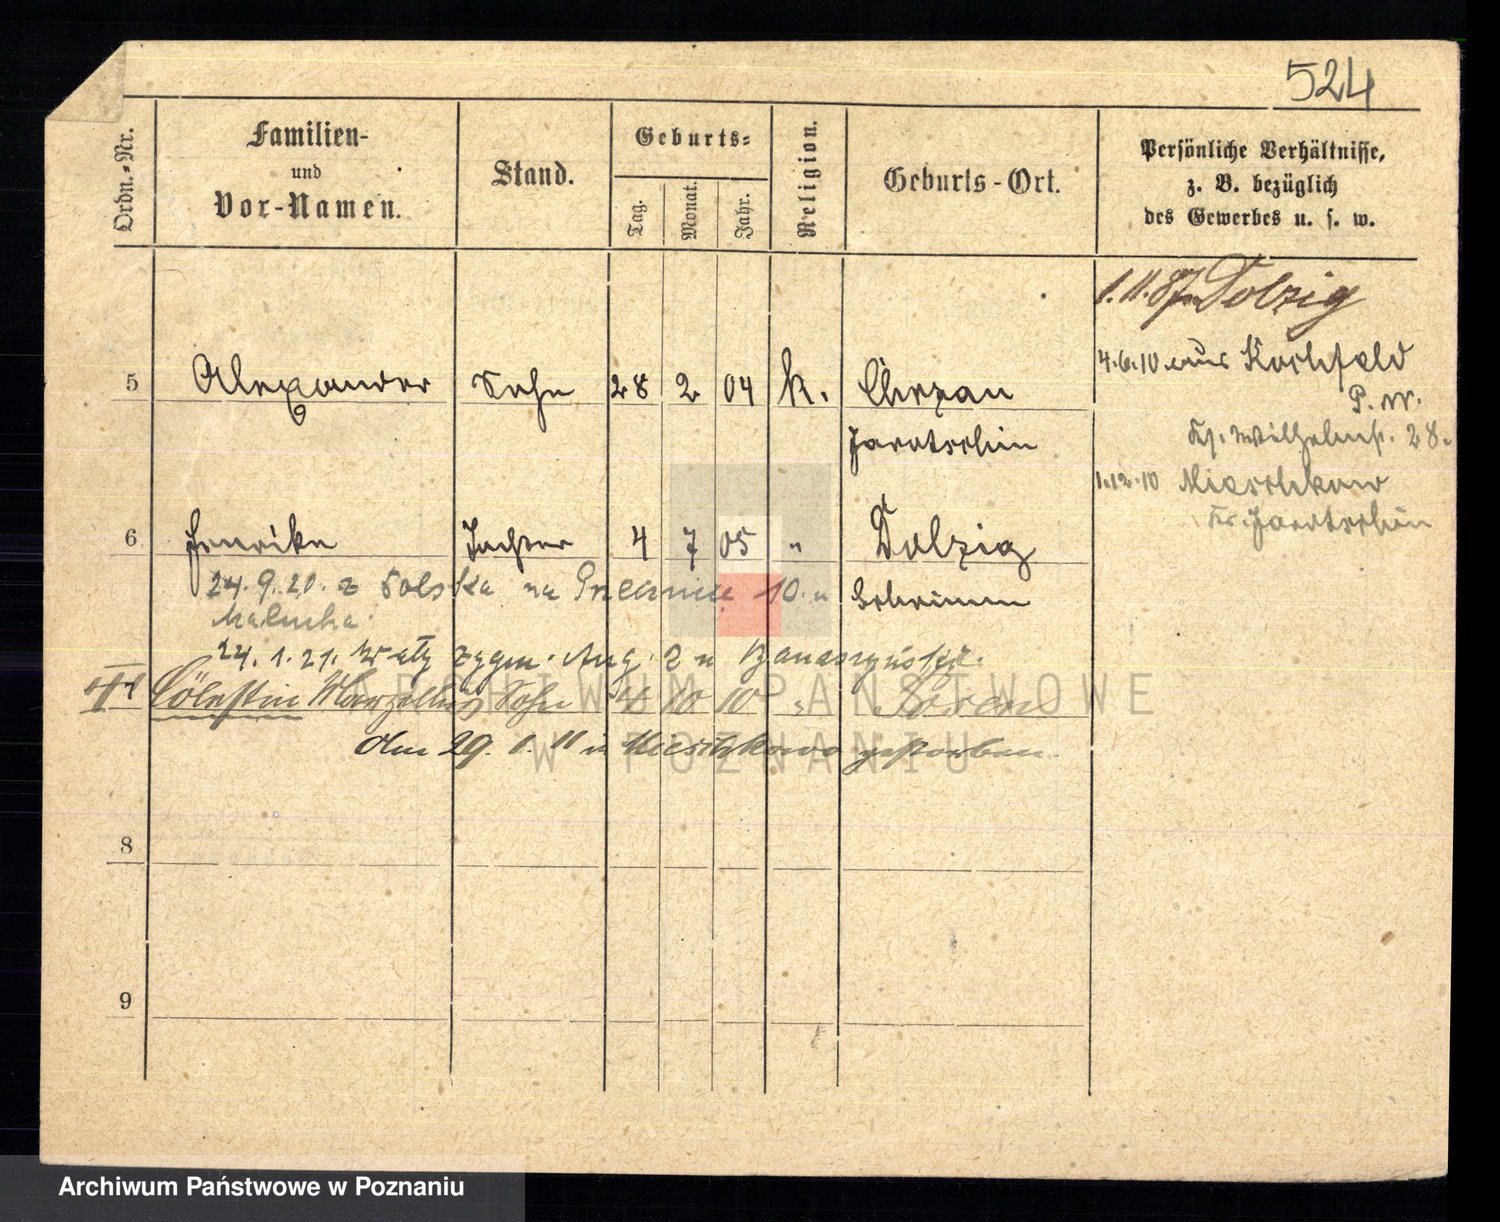 524
Ordn.-Nr.
Familien-
und
Vor-Namen.
Stand.
Geburts-
Tag.
Monat.
Jahr.
Religion.
Geburts-Ort.
Persönliche Verhältnisse,
z. B. bezüglich
des Gewerbes u. s. w.
Dolzig
4.6.10 aus Kochfeld
P. W.
28.
1.12.10 Mieschkow
Kr. Jarotschin
5 Alexander Sohn 28 2 04 k. Chrzan
Jarotschin
6 Henrike Tochter 4 7 05 " Dolzig
Schrimm
24.9.20. z Polska na 10.
24.1.21. Zygm. Aug. 2 u
Cölestin Sohn 4 10 10 " Posen
Am 29. 1. 11 in Mieschkow gestorben.
8
9
ARCHIWUM PAŃSTWOWE
W POZNANIU
Archiwum Państwowe w Poznaniu